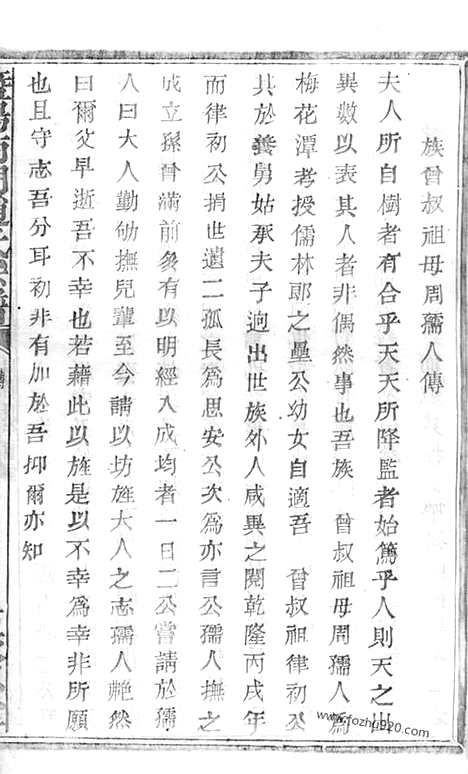 族曾叔祖母周孺人傳
夫人所自樹者有合乎天天所降監者始篤乎人則天之出
異數以表其人者非偶然事也吾族 曾叔祖母周孺人爲
梅花潭考授儒林郎之壘公幼女自適吾 曾叔祖律初公
其於養舅姑承夫子逈出世族外人咸異之閱乾隆丙戌年
而律初公捐世遺二孤長爲思安公次爲亦言公孺人撫之
成立孫曾滿前多有以明經入成均者一日二公嘗請於孺
人曰大人勤劬撫兒輩至今請以坊旌大人之志孺人艴然
曰爾父早逝吾不幸也若藉此以旌是以不幸爲幸非所願
也且守志吾分耳初非有加於吾抑爾亦知
傳
www.fozhu920.com